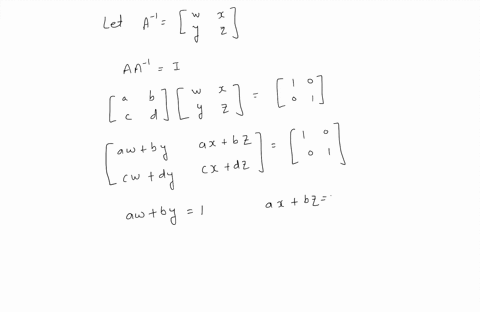 Let A⁻¹ = [ w x ; y z ]
AA⁻¹ = I
[ a b ; c d ] [ w x ; y z ] = [ 1 0 ; 0 1 ]
[ aw+by ax+bz ; cw+dy cx+dz ] = [ 1 0 ; 0 1 ]
aw+by = 1 ax+bz=